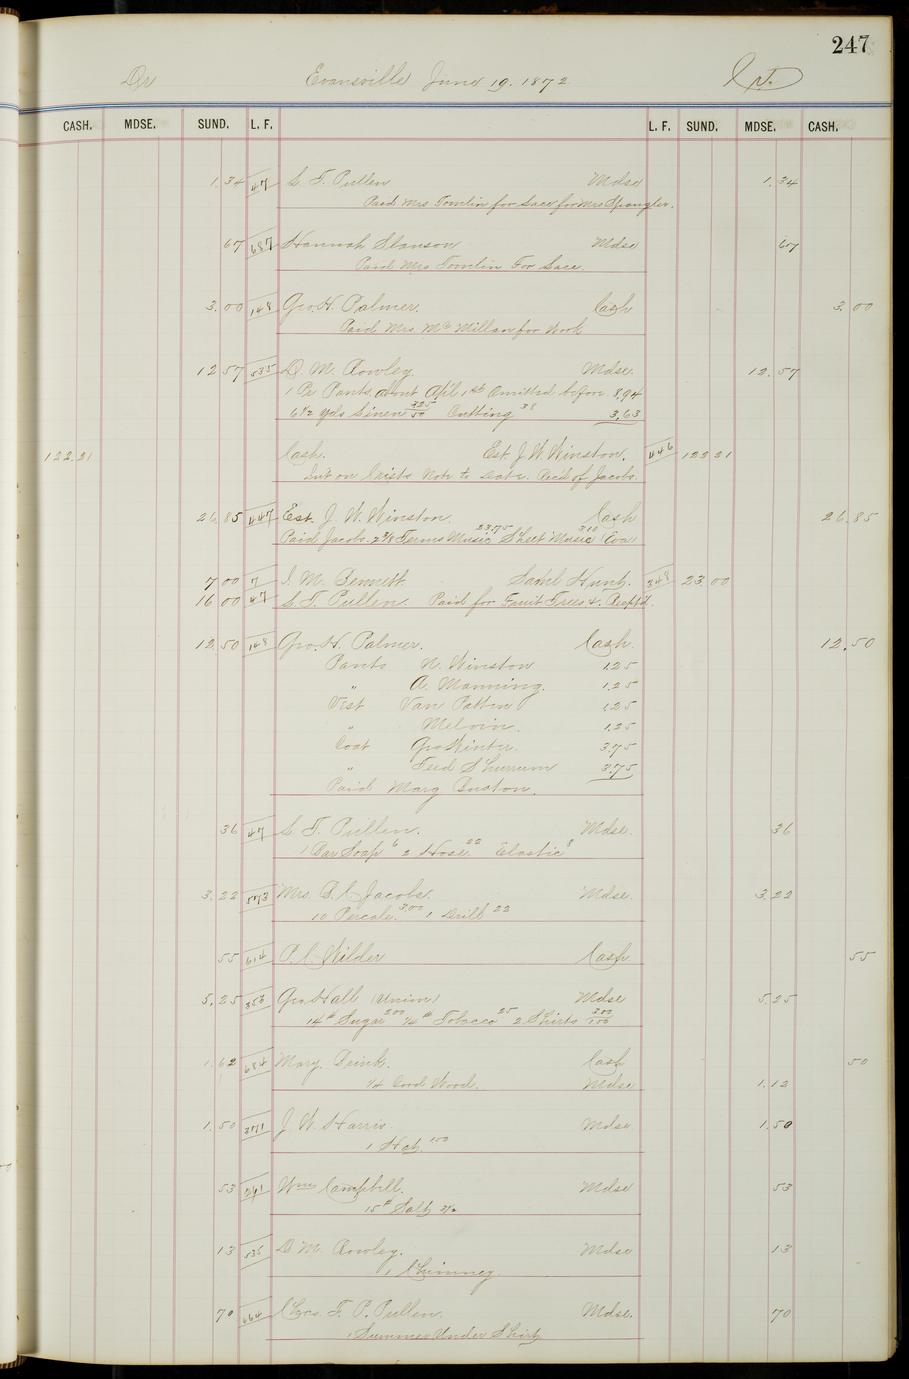 247
Dr Evansville June 19. 1872
CASH. MDSE. SUND. L. F. L. F. SUND. MDSE. CASH.
1.34 47 S. T. Pullen Mdse 1.34
Paid Mrs Tomlin for Lace for Mrs Spangler.
67 687 Hannah Slauson Mdse 67
Paid Mrs Tomlin For Lace.
3.00 148 Geo. H. Palmer. Cash 3.00
Paid Mrs. McMillan for Work
12 57 535 D. M. Rowley. Mdse. 12.57
1 Pr Pants. about April 1st Omitted before. 8.94
6 1/2 yds Linen 325/50 Cutting 38 3.63
122.21 Cash. Est. J. W. Winston. 446 122 21
Int on Note to date. Rec'd of Jacobs.
26.85 447 Est. J. W. Winston. Cash 26.85
Paid Jacobs. Terms Music 23.75 Sheet Music 3.10 (Eva)
7 00 7 I. M. Bennett Sam'l Hunt. 348 23.00
16 00 47 S. T. Pullen. Paid for Fruit Trees &.
12.50 148 Geo. H. Palmer. Cash. 12.50
Pants N. Winston 1.25
" A. Manning. 1.25
Vest Van Patten 1.25
" Melvin. 1.25
Coat Geo Winter. 3.75
" Fred Shurrum 3.75
Paid Mary Buston.
36 47 S. T. Pullen. Mdse. 36
1 Bar Soap 6 2 Hose. 22 Elastic 8
3.22 573 Mrs. B. C. Jacobs. Mdse. 3.22
10 Percale. 3.00 1 Drill 22
55 614 P. C. Wilder Cash 55
5.25 353 Geo. Hall (Union) Mdse 5.25
14# Sugar 2.00 1/4# Tobacco 25 2 Shirts 3.00/1.50
1.62 684 Mary Brink. Cash 50
1/4 Cord Wood. Mdse 1.12
1.50 371 J. W. Harris. Mdse 1.50
1 Hat. 150
53 241 Wm Campbell. Mdse 53
15# Salt
13 535 D. M. Rowley. Mdse 13
1 Chimney.
70 664 Chas. F. P. Pullen. Mdse. 70
1 Summer Under Shirt